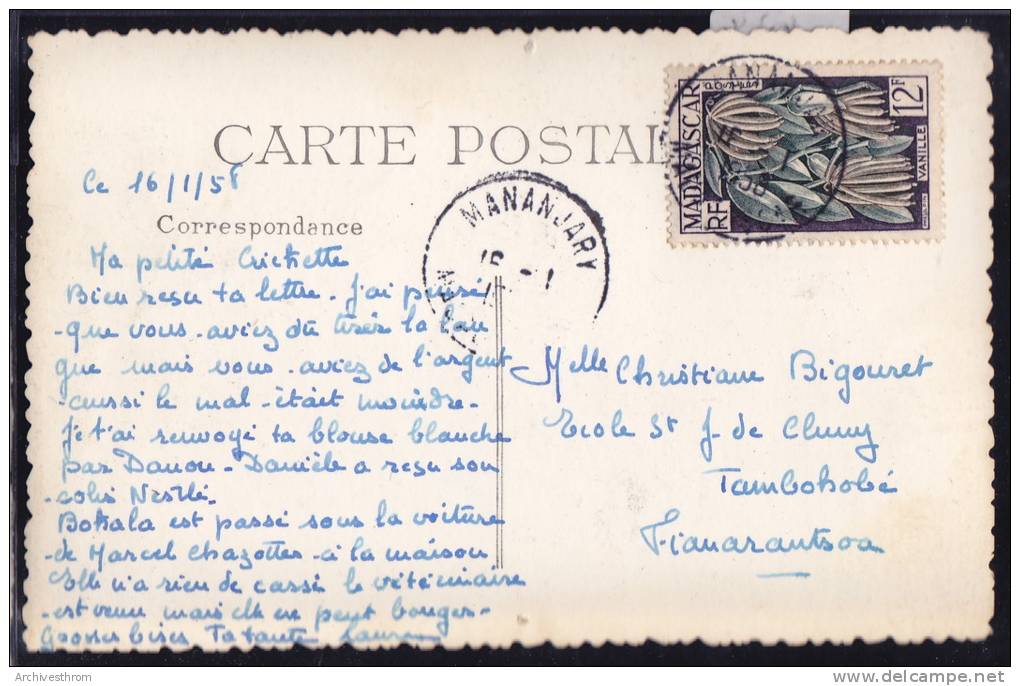 CARTE POSTAL
Ce 16/1/58
Correspondance
Ma petite Crickette
Bien reçu ta lettre. J'ai pensé
que vous aviez dû tirer la
que mais vous aviez de l'argent
aussi le mal était moindre.
Je t'ai renvoyé ta blouse blanche
par Danou. Danièle a reçu son
colis Nestlé.
Bokala est passé sous la voiture
de Marcel Chazottes à la maison
Elle n'a rien de cassé le vétérinaire
est venu mais elle ne peut bouger.
Grosses bises Ta tante
MANANJARY
MANANJARY
16
1
MADAGASCAR
RF
12F
VANILLE
Melle Christiane Bigouret
Ecole St J. de Cluny
Tambohobé
Fianarantsoa
Archivesthrom
www.delcampe.net